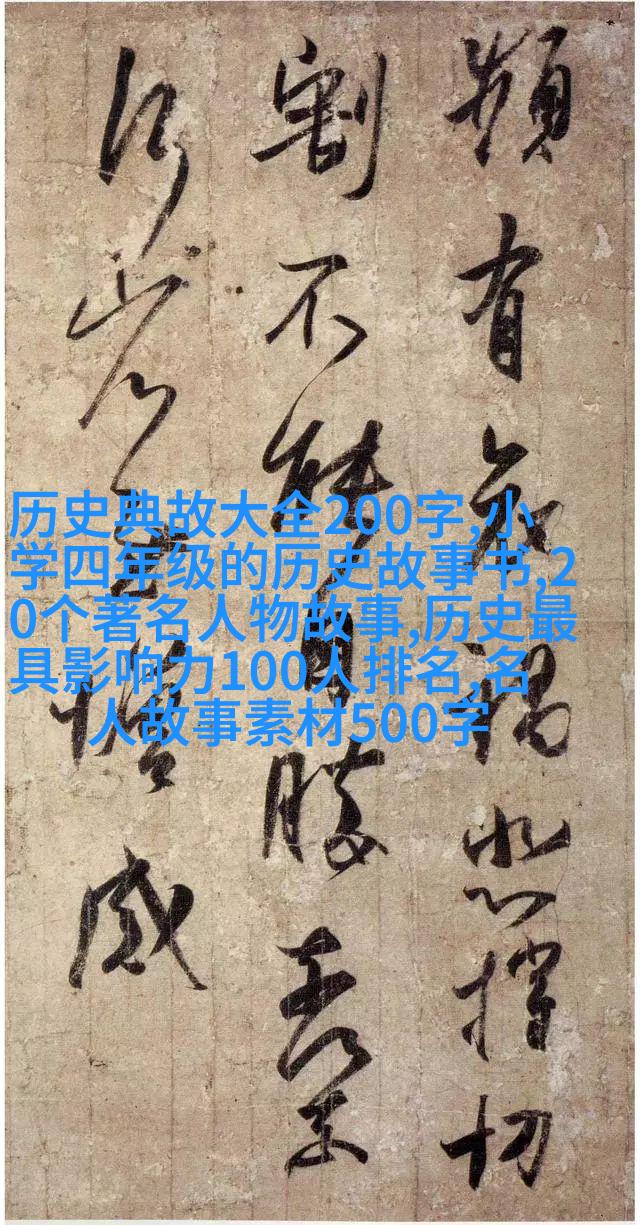 頻有哀禍悲摧切
割不能自勝奈何奈
何省慰增感
历史典故大全200字,小
学四年级的历史故事书,2
0个著名人物故事,历史最
具影响力100人排名,名
人故事素材500字